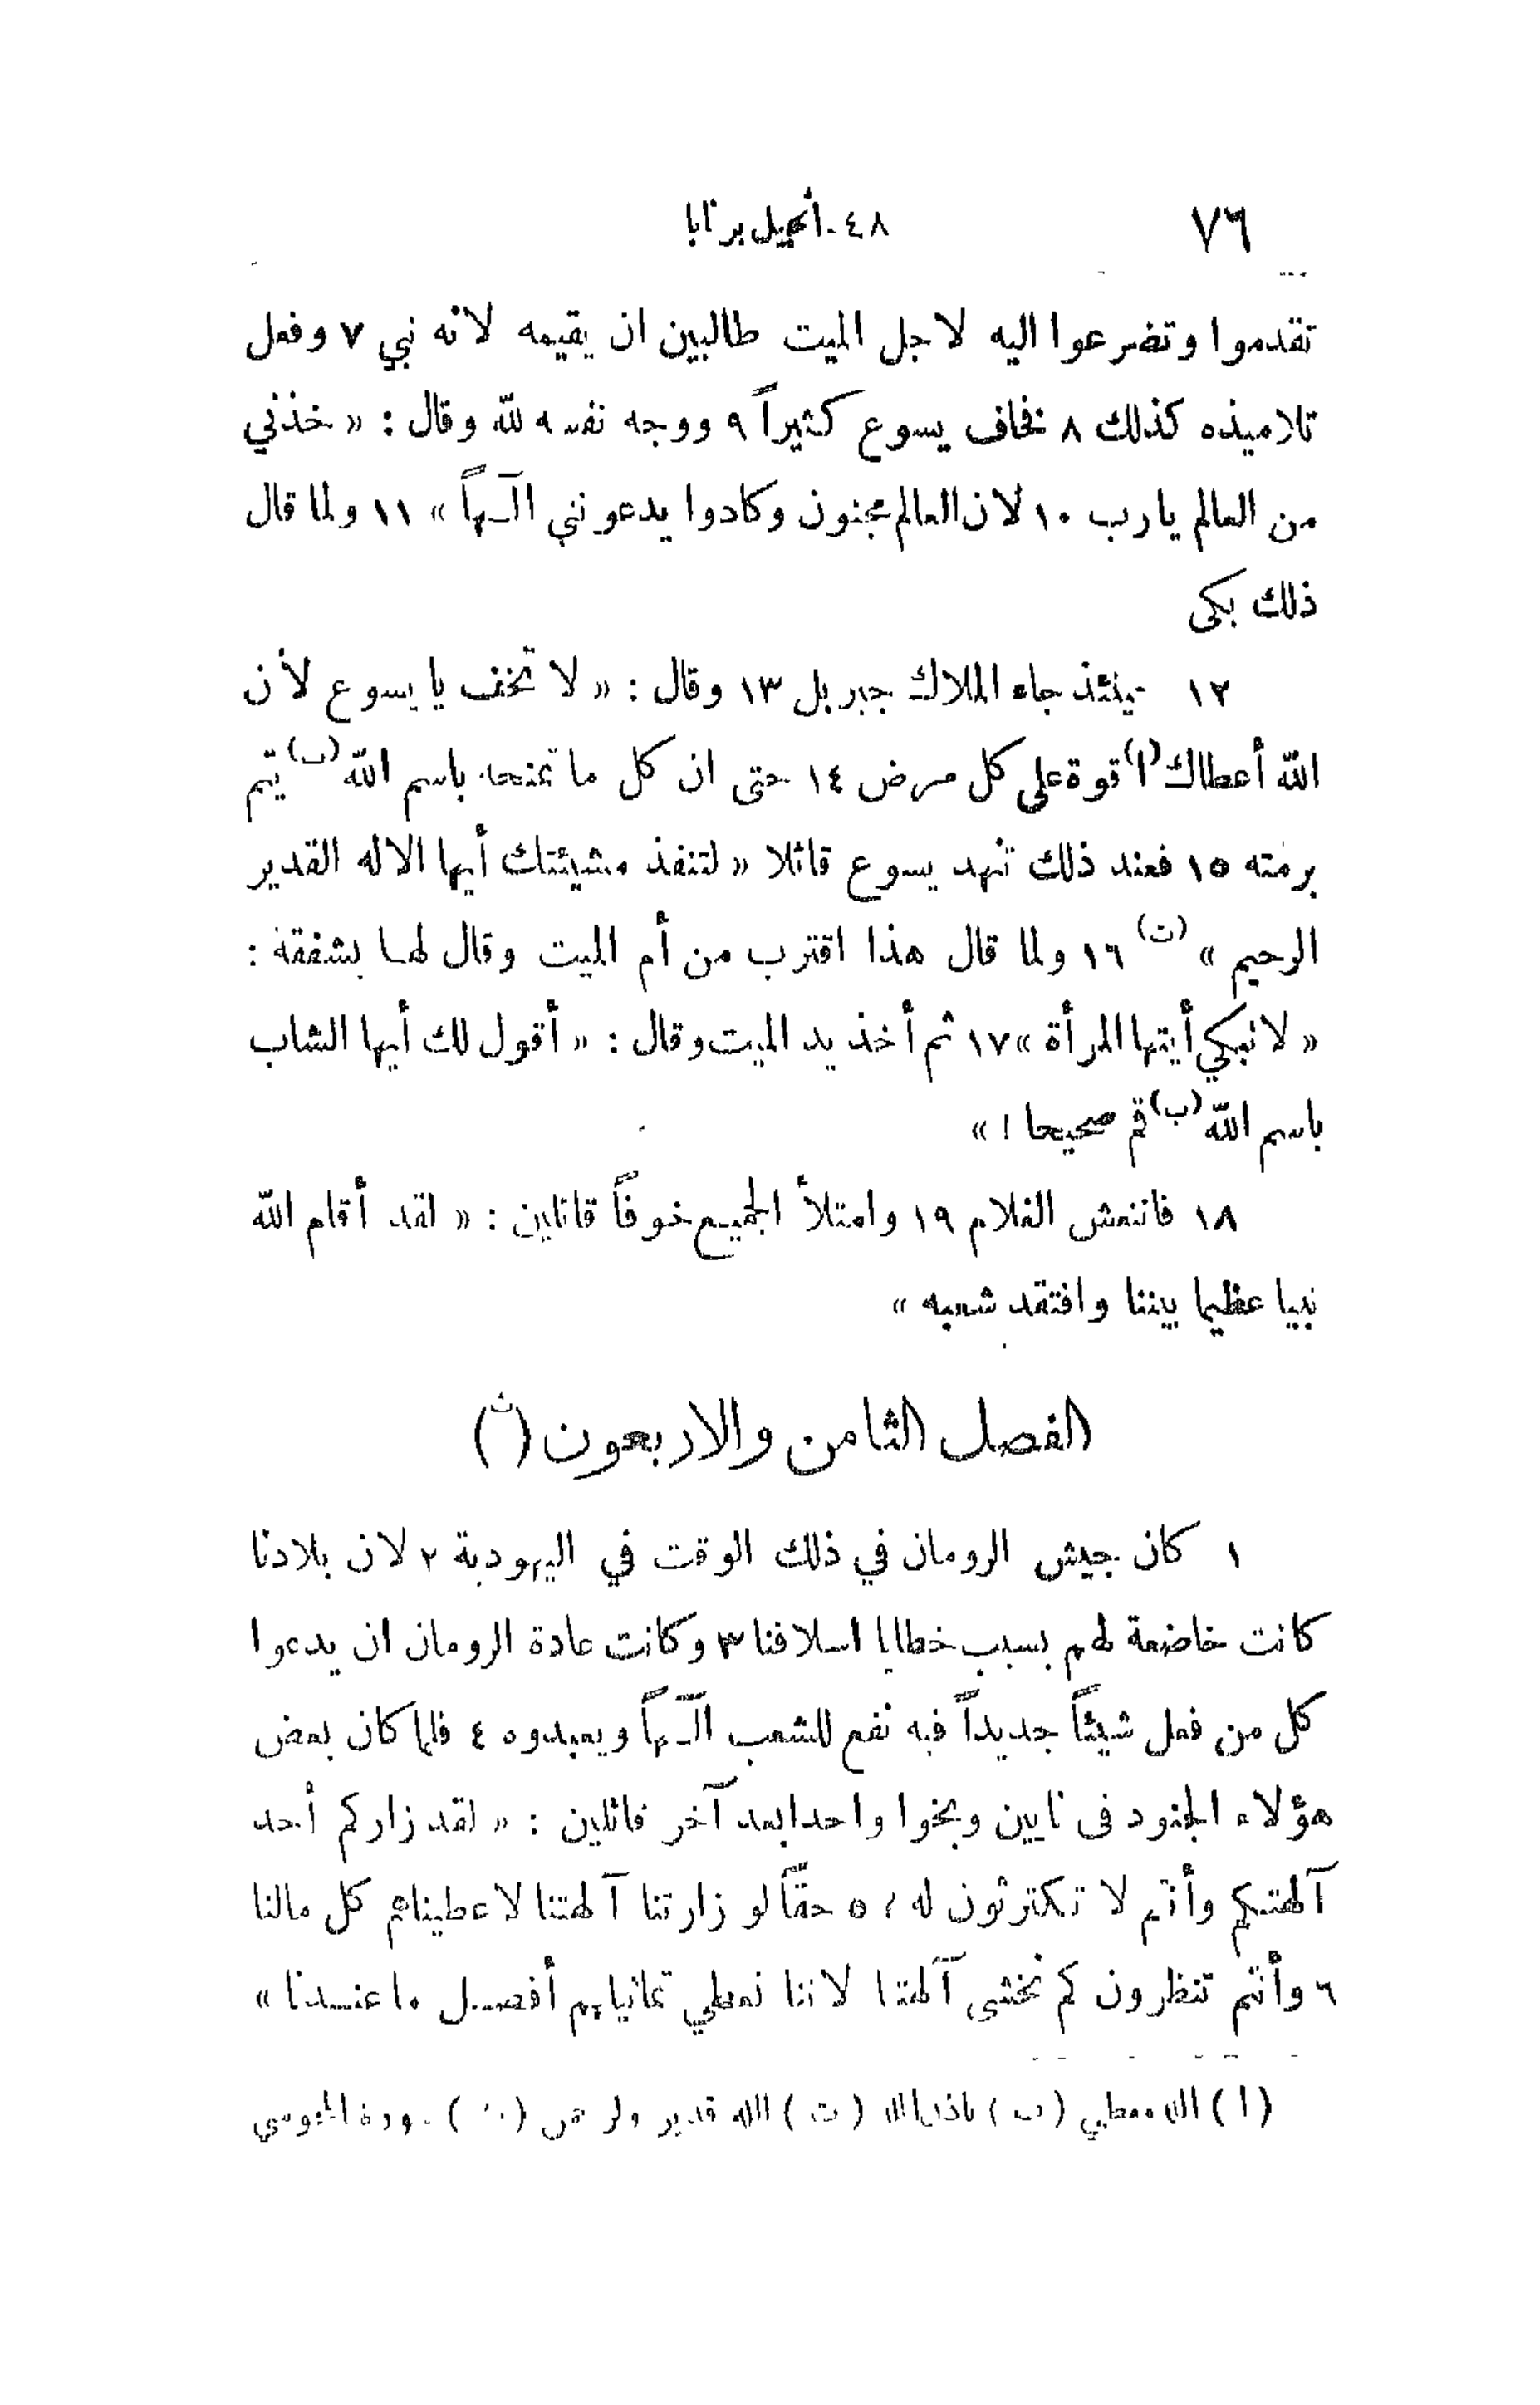 ٧٦ ٤٨-أنجيل برنابا
تقدموا وتضرعوا اليه لاجل الميت طالبين ان يقيمه لانه نبي ٧ وفعل
تلاميذه كذلك ٨ فخاف يسوع كثيراً ٩ ووجه نفسه لله وقال : « خذني
من العالم يارب ١٠ لان العالم مجنون وكادوا يدعونني الـهاً » ١١ ولما قال
ذلك بكى
١٢ حينئذ جاء الملاك جبريل ١٣ وقال : « لا تخف يا يسوع لأن
الله أعطاك (ا) قوة على كل مرض ١٤ حتى ان كل ما تمنحه باسم الله (ب) يتم
برمته ١٥ فعند ذلك تنهد يسوع قائلا « لتنفذ مشيئتك أيها الاله القدير
الرحيم » (ت) ١٦ ولما قال هذا اقترب من أم الميت وقال لها بشفقة :
« لا تبكي أيتها المرأة » ١٧ ثم أخذ يد الميت وقال : « أقول لك أيها الشاب
باسم الله (ب) قم صحيحا ! »
١٨ فانتعش الغلام ١٩ وامتلأ الجميع خوفاً قائلين : « لقد أقام الله
نبيا عظيما بيننا وافتقد شعبه »
الفصل الثامن والاربعون (ث)
١ كان جيش الرومان في ذلك الوقت في اليهودية ٢ لان بلادنا
كانت خاضعة لهم بسبب خطايا اسلافنا ٣ وكانت عادة الرومان ان يدعوا
كل من فعل شيئاً جديداً فيه نفع للشعب الـهاً ويعبدوه ٤ فلما كان بعض
هؤلاء الجنود في نايين وبخوا واحدا بعد آخر قائلين : « لقد زاركم أحد
آلهتكم وأنتم لا تكترثون له ! ٥ حقاً لو زارتنا آلهتنا لاعطيناهم كل مالنا
٦ وأنتم تنظرون كم نخشى آلهتنا لاننا نعطي تماثيلهم أفضل ما عندنا »
(ا) الله معطي (ب) باذن الله (ت) الله قدير والرحمن (ث)